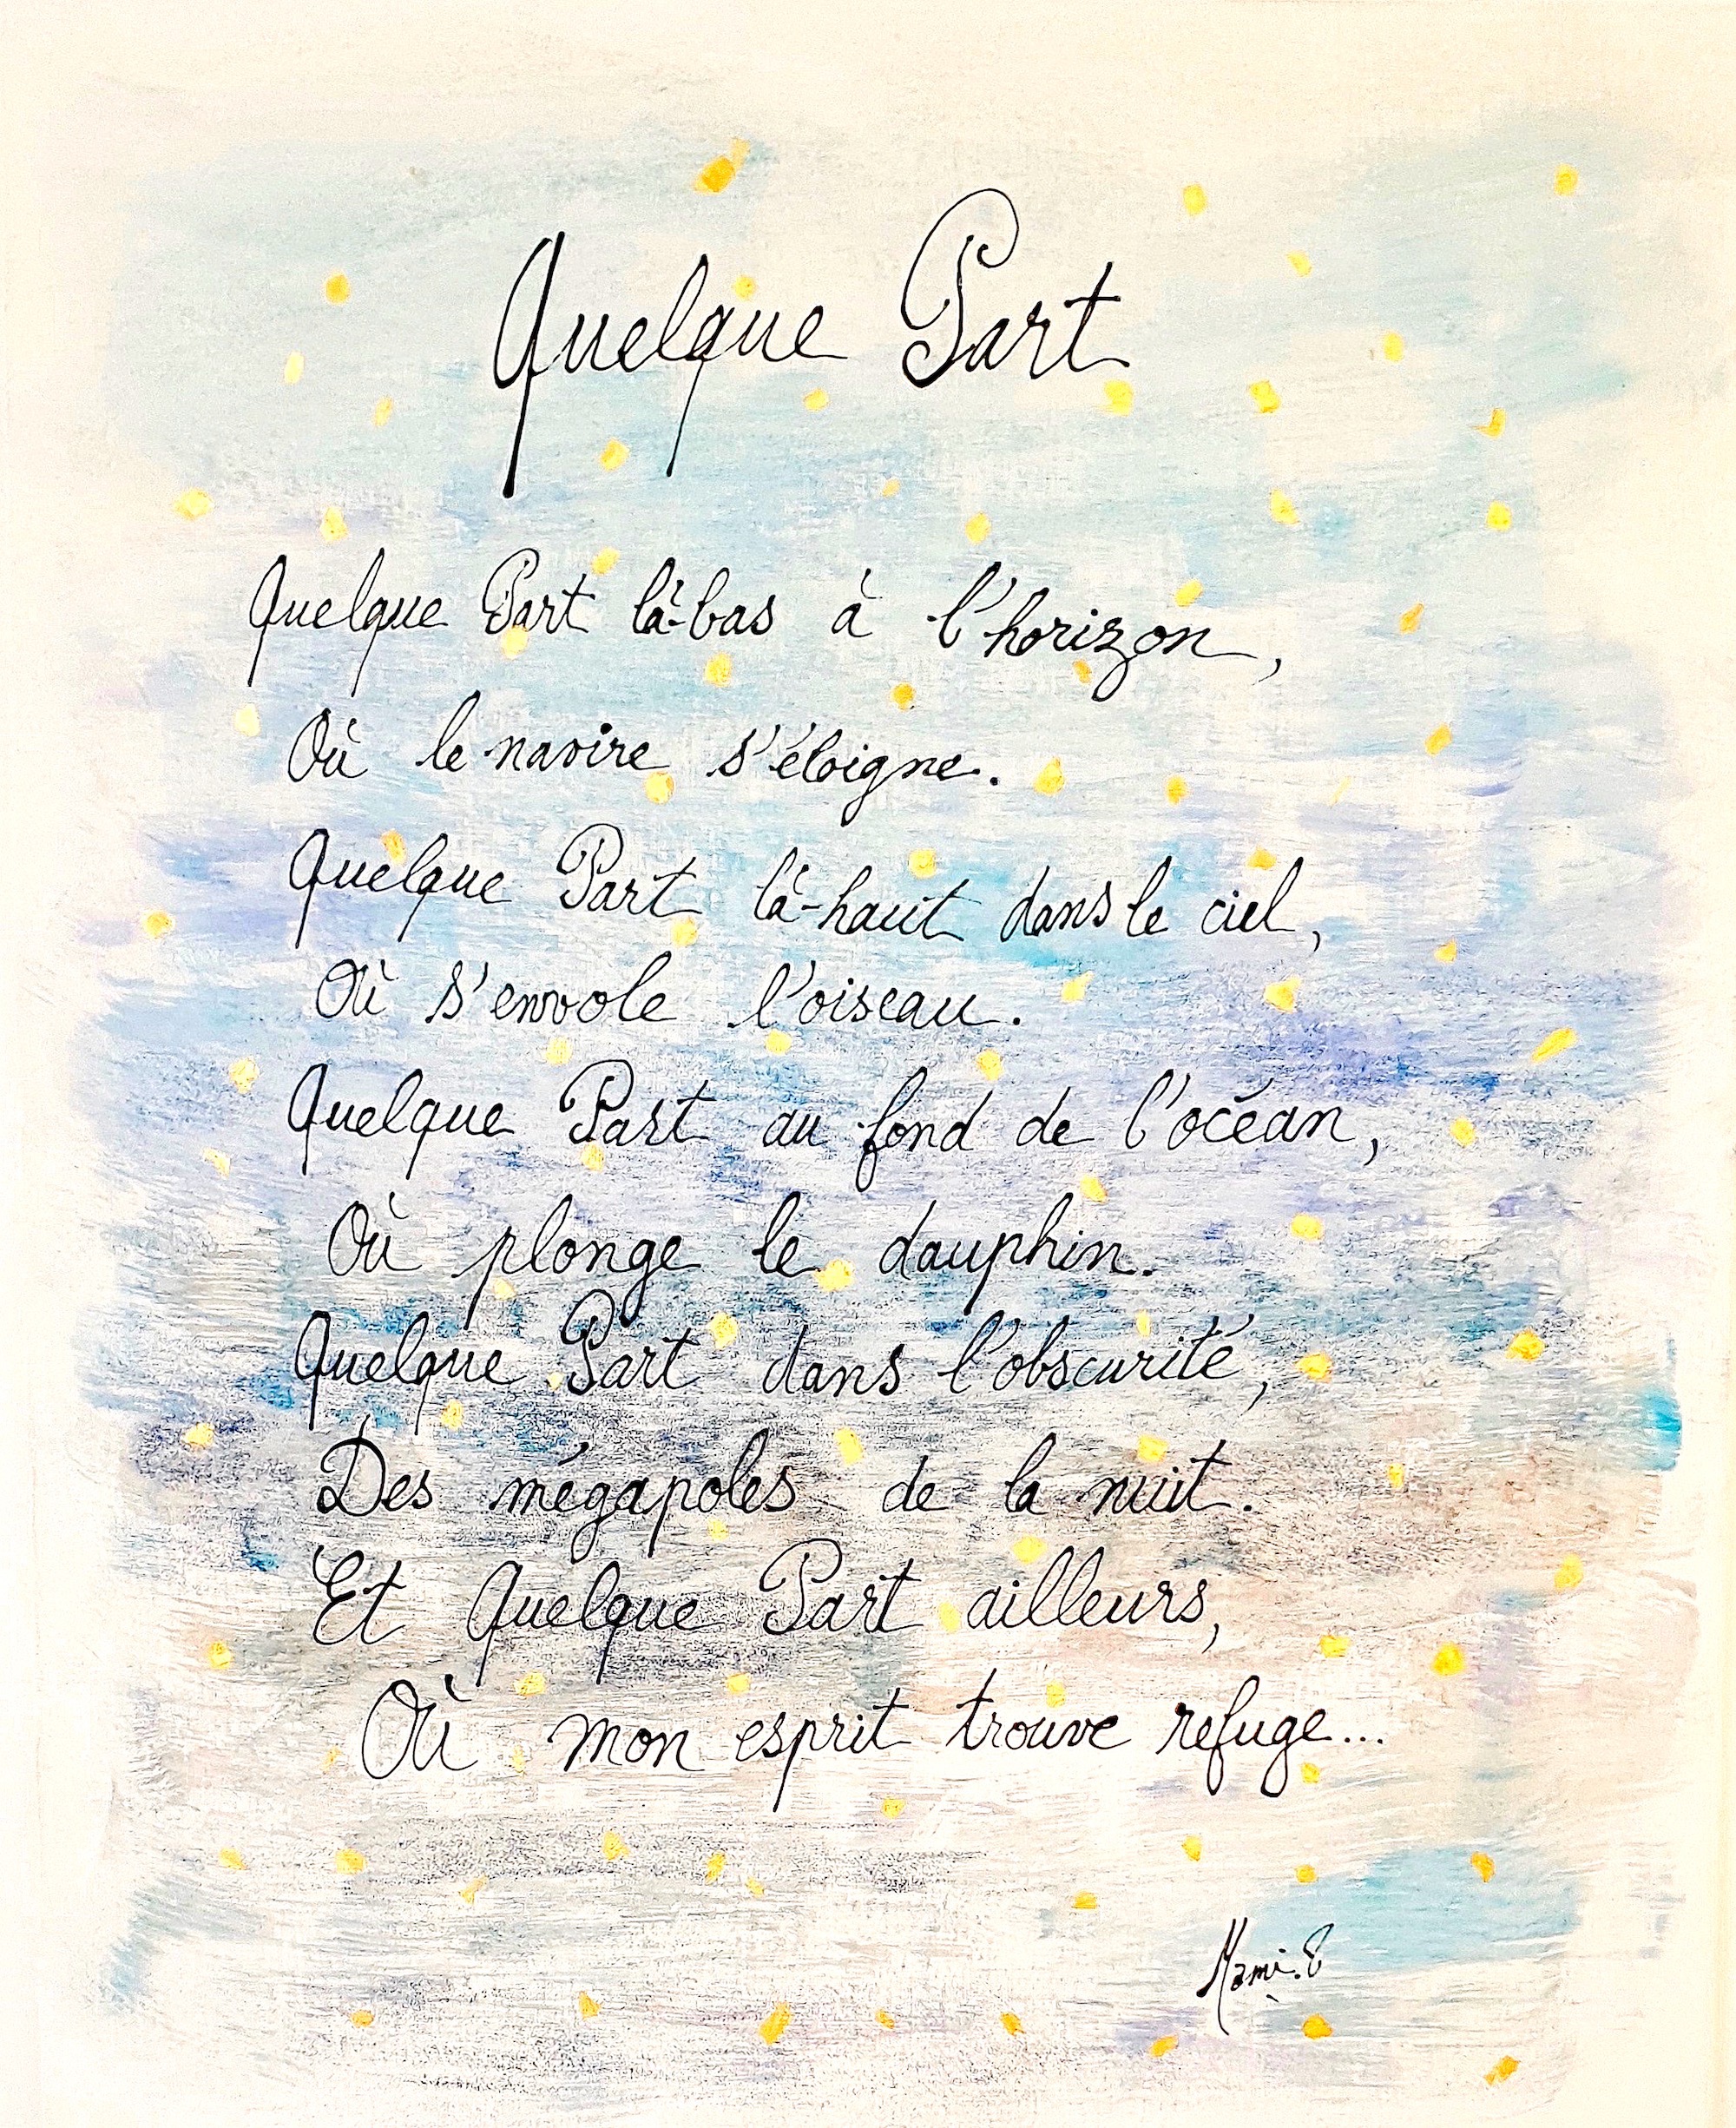 Quelque Part
Quelque Part là-bas à l'horizon,
Où le navire s'éloigne.
Quelque Part là-haut dans le ciel,
Où s'envole l'oiseau.
Quelque Part au fond de l'océan,
Où plonge le dauphin.
Quelque Part dans l'obscurité,
Des mégapoles de la nuit.
Et Quelque Part ailleurs,
Où mon esprit trouve refuge...